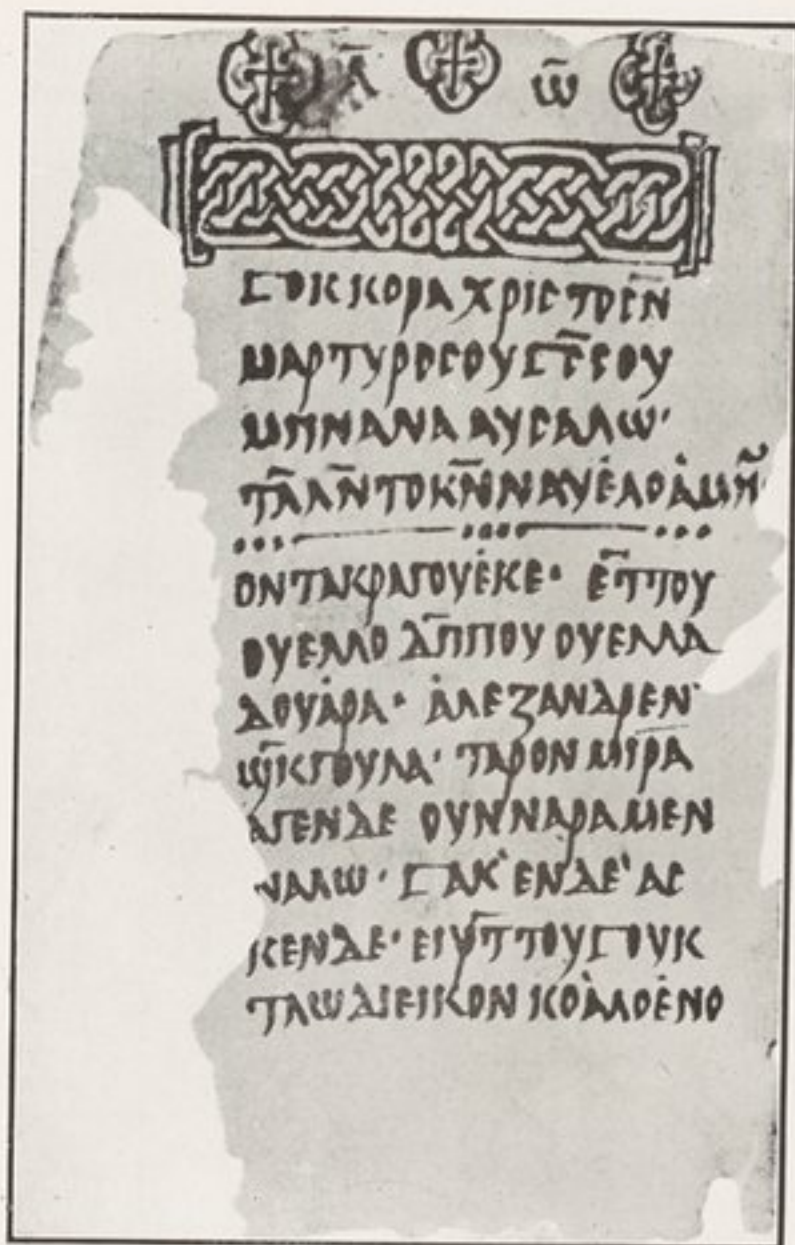 ⲁ̄ ⲱ̄
ⳟⲟⲕⲕⲟⲣⲁ ⲭⲣⲓⲥⲧⲟⲥⲛ̄
ⲙⲁⲣⲧⲩⲣⲟⲥⲟⲩ ⳟⲥ̄ⲥⲟⲩ
ⲙⲏⲛⲁⲛⲁ ⲁⲩⲥⲁⲗⲱ·
ⲧⲗ̄ⲗⲛ̄ ⲧⲟⲕⲛ̄ⲛⲁⲩⲉ̇ⲗⲟ ⲁ̇ⲙⲏⲛ̄·
ⲟⲛ ⲧⲁⲕⲣⲁⲅⲟⲩⲉ̇ⲕⲉ· ⲉ̄ⲧⲧⲟⲩ
ⲟⲩⲉⲗⲗⲟ ⲇ̄ⲡⲡⲟⲩ ⲟⲩⲉⲗⲗⲁ
ⲇⲟⲩⲁ̇ⲣⲁ· ⲁ̇ⲗⲉⲝⲁⲛⲇⲣⲉⲛ
ϣ̄ⲕⲅⲟⲩⲗⲁ· ⲧⲁⲣⲟⲛ ⲙⲓⲣⲁ
ⲁⲅⲉⲛⲇⲉ ⲟⲩⲛⲛⲁⲣⲁ ⲙⲉⲛ
ⲛⲁⲗⲱ· ⳟⲁⲕ ⲉⲛⲇⲉ ⲁⲥ
ⲕⲉⲛⲇⲉ· ⲉⲓⲣⲧ̄ⲧⲟⲩⳟⲟⲩⲕ
ⲧⲗⲱ ⲇⲓⲉⲓⲕⲟⲛ ⲕⲟⲗ̇ⲗⲟⲉ̇ⲛⲟ